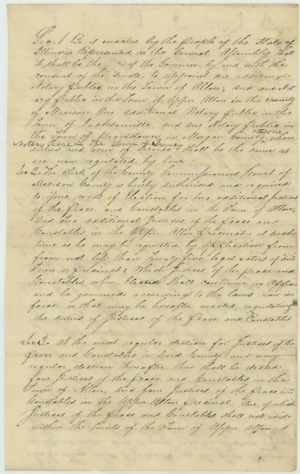 Sec. 1 Be it enacted by the people of the State of
Illinois Represented in the General Assembly that
it shall be the of the Governor by and with the
consent of the Senate, to appoint one additional
Notary Public in the Town of Alton, and one
ary Public in the Town of Upper Alton in the County
of Madison, One additional Notary Public in the
Town of and one Notary Public in
the Town of in Morgan County, whose
duties and term of Service shall be the same as
are now regulated by law
Sec 2. The Clerk of the County Commissioners Court of
Madison County is hereby authorised and required
to issue writs of Election for two additional Justices
of the Peace and Constables in the Town of Alton,
and one additional Justice of the Peace and
Constable in the Upper Alton Precinct, at such
time as he may be requested by application from
not less than legal voters of said
Town or Precinct; Which Justices of the peace and
Constables when Elected shall continue in Office
and be governed according to the laws now in
force, or that may be hereafter enacted, regulating
the duties of Justices of the Peace and Constables
Sec 3. At the next regular election for Justices of the
Peace and Constables in Said County and every
regular election thereafter there shall be elected
four Justices of the Peace and Constables in the
Town of Alton, and four Justices of the Peace and
Constables in the Upper Alton Precinct, two of which
Justices of the Peace and Constables shall not reside
within the limits of the Town of Upper Alton